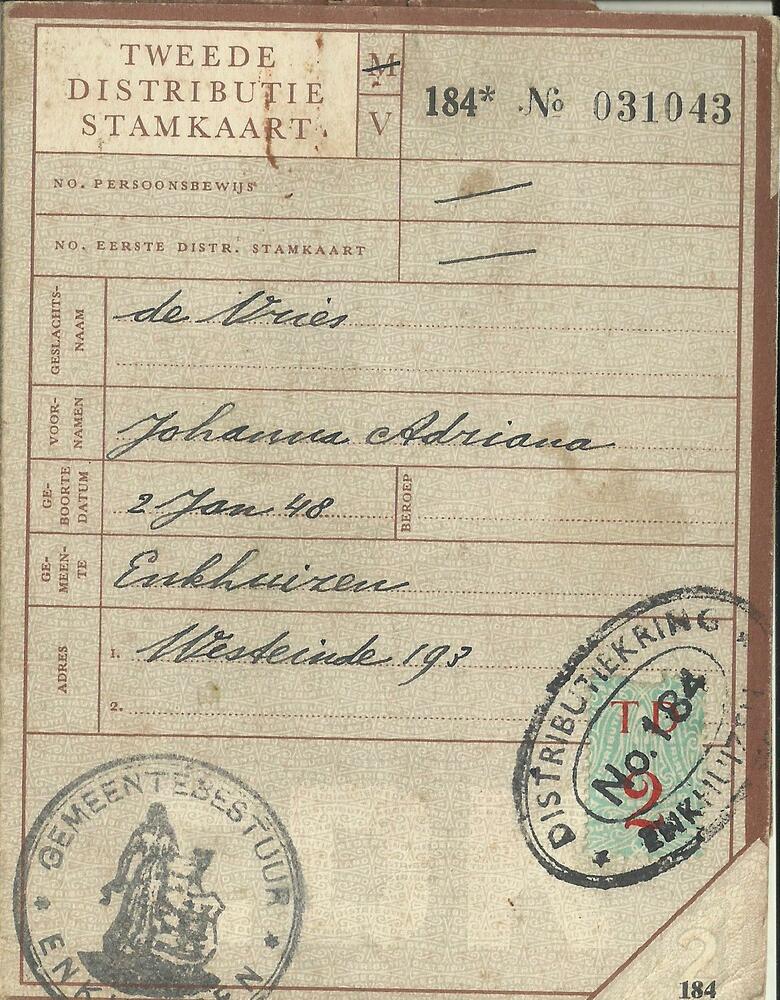 TWEEDE
DISTRIBUTIE
STAMKAART.
M
V
184* No 031043
NO. PERSOONSBEWIJS
NO. EERSTE DISTR. STAMKAART
GESLACHTS-
NAAM
de Vries
VOOR-
NAMEN
Johanna Adriana
GE-
BOORTE
DATUM
2 Jan 48
BEROEP
GE-
MEEN-
TE
Enkhuizen
ADRES
1. Westeinde 193
2.
DISTRIBUTIEKRING
ENKHUIZEN
No. 184
TD
2
GEMEENTEBESTUUR
2
184